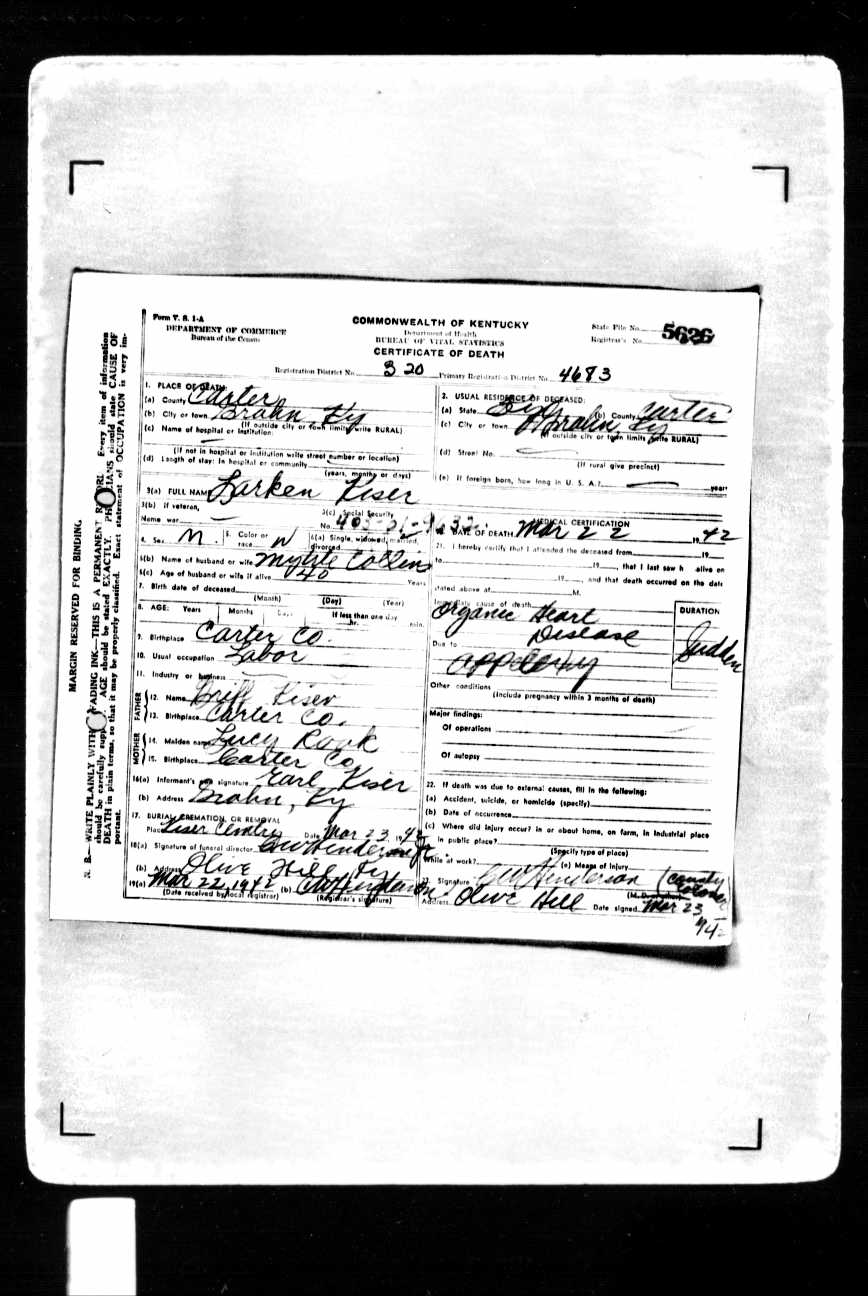 Form V. S. 1-A
DEPARTMENT OF COMMERCE
Bureau of the Census
COMMONWEALTH OF KENTUCKY
Department of Health
BUREAU OF VITAL STATISTICS
CERTIFICATE OF DEATH
State File No. 5626
Registrar's No.
Registration District No. 320 Primary Registration District No. 4683
1. PLACE OF DEATH:
(a) County Carter
(b) City or town Grahn Ky
(If outside city or town limits, write RURAL)
(c) Name of hospital or institution:
(If not in hospital or institution write street number or location)
(d) Length of stay: In hospital or community
(years, months or days)
2. USUAL RESIDENCE OF DECEASED:
(a) State Ky (b) County Carter
(c) City or town Grahn Ky
(If outside city or town limits, write RURAL)
(d) Street No.
(If rural give precinct)
(e) If foreign born, how long in U. S. A.? years
3(a) FULL NAME Larken Kiser
3(b) If veteran,
Name war
3(c) Social Security
No.
4. Sex M. 5. Color or race W 6(a) Single, widowed, married, divorced
6(b) Name of husband or wife Collins
6(c) Age of husband or wife if alive 40 Years
7. Birth date of deceased
(Month) (Day) (Year)
8. AGE: Years Months Days If less than one day
hr. min.
9. Birthplace Carter Co.
10. Usual occupation Labor
11. Industry or business
FATHER
12. Name Kiser
13. Birthplace Carter Co.
MOTHER
14. Maiden name Lucy
15. Birthplace Carter Co.
16(a) Informant's own signature Earl Kiser
(b) Address Grahn, Ky
17. BURIAL, CREMATION, OR REMOVAL
Place Kiser Date Mar 23, 1942
18(a) Signature of funeral director Henderson
(b) Address Olive Hill Ky
19(a) Mar 22, 1942 (b) Henderson
(Date received by local registrar) (Registrar's signature)
MEDICAL CERTIFICATION
20. DATE OF DEATH Mar 22 1942
21. I hereby certify that I attended the deceased from 19
to 19, that I last saw h alive on
19, and that death occurred on the date
stated above at M.
Immediate cause of death
Organic Heart
Disease
Due to
DURATION
Sudden
Other conditions
(Include pregnancy within 3 months of death)
Major findings:
Of operations
Of autopsy
22. If death was due to external causes, fill in the following:
(a) Accident, suicide, or homicide (specify)
(b) Date of occurrence
(c) Where did injury occur? in or about home, on farm, in industrial place
in public place?
(Specify type of place)
While at work? (e) Means of injury
23. Signature Henderson (county coroner)
Address Olive Hill Date signed Mar 23
1942
MARGIN RESERVED FOR BINDING.
N. B.—WRITE PLAINLY WITH UNFADING INK—THIS IS A PERMANENT RECORD. Every item of information
should be carefully supplied. AGE should be stated EXACTLY. PHYSICIANS should state CAUSE OF
DEATH in plain terms, so that it may be properly classified. Exact statement of OCCUPATION is very im-
portant.